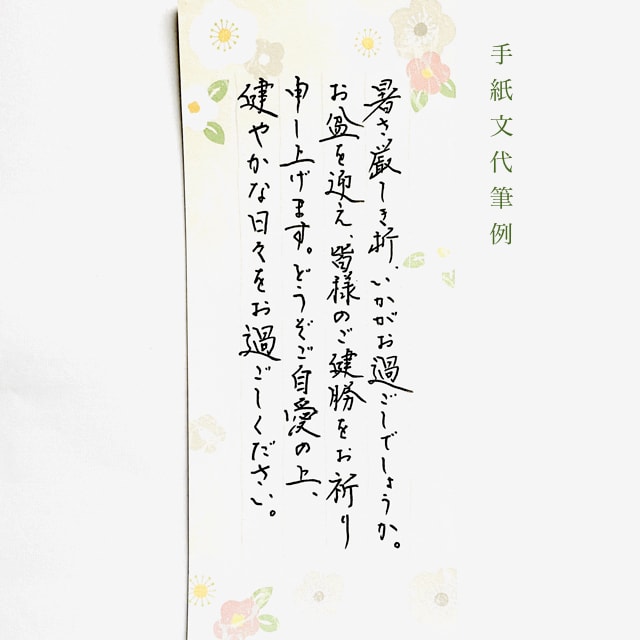 手紙文代筆例
暑さ厳しき折、いかがお過ごしでしょうか。
お盆を迎え、皆様のご健勝をお祈り
申し上げます。どうぞご自愛の上、
健やかな日々をお過ごしください。